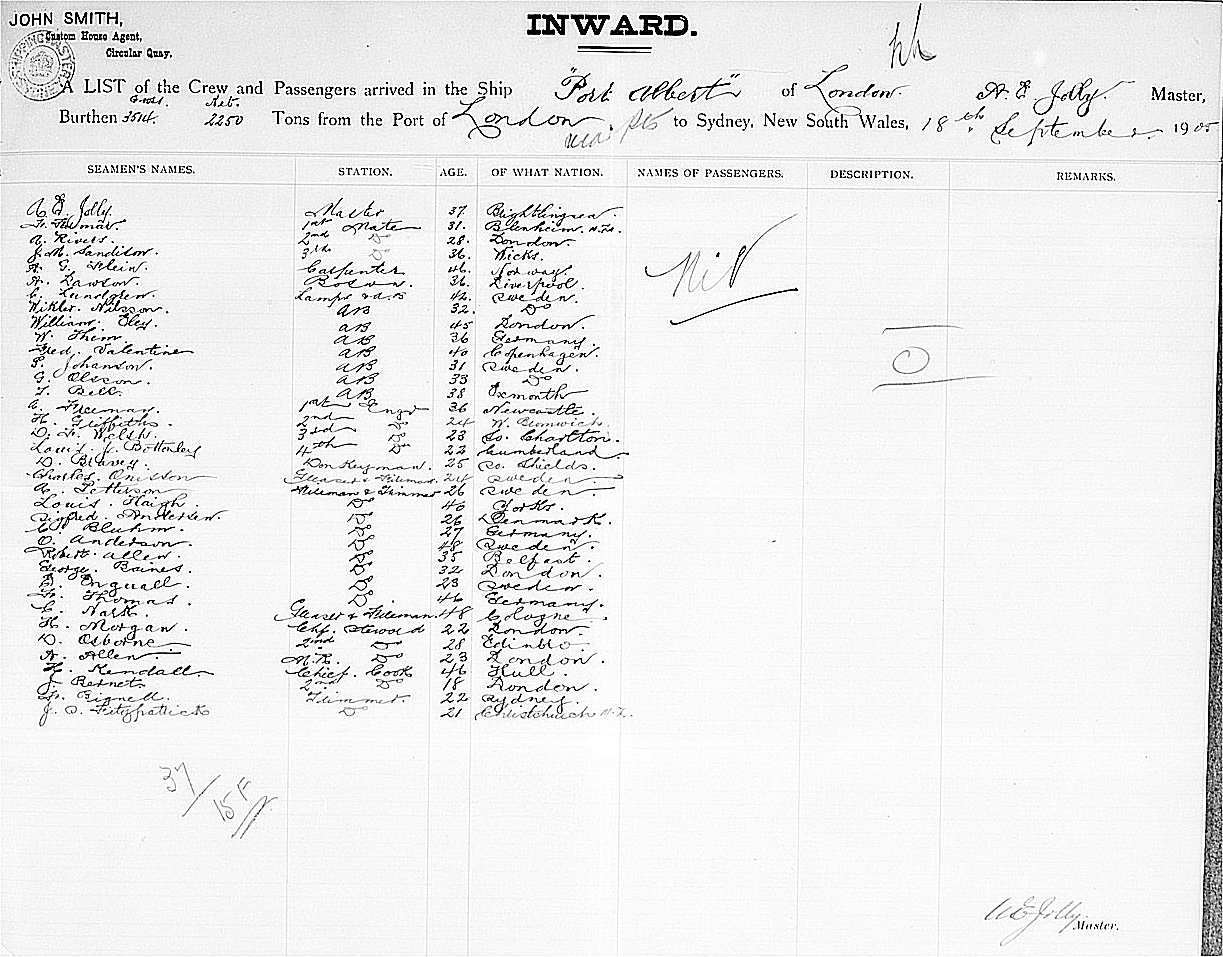 JOHN SMITH,
Custom House Agent,
Circular Quay.
INWARD.
A LIST of the Crew and Passengers arrived in the Ship "Port Albert" of London. A. E. Jolly. Master,
Gross. Net.
Burthen 3514. 2250 Tons from the Port of London via pts to Sydney, New South Wales, 18th September 1905
SEAMEN'S NAMES. STATION. AGE. OF WHAT NATION. NAMES OF PASSENGERS. DESCRIPTION. REMARKS.
A E. Jolly. Master 37. Brightlingsea.
1st Mate 31. Blenheim. N.Z.
A. Rivers. 2nd Do 28. London
J. M. Sandison. 3rd Do 36. Wicks.
A. G. Stein. Carpenter 46. Norway.
A. Dawson. Bosun. 36. Liverpool.
C. Lundgren. Lamps & A.B 42. Sweden.
Nilsson. AB 32. Do
William. Eley. AB 45 London.
W. Thim. AB 36 Germany.
Fred. Valentine AB 40 Copenhagen.
P. Johanson. AB 31 Sweden.
G. Olsson. AB 33 Do
T. Bell. AB 38 Exmouth
C. Freeman. 1st Engr 36 Newcastle.
H. Griffiths. 2nd Do 24 W. Bromwich
D. F. Welsh. 3rd Do 23 So. Charlton.
Louis. J. Bottomley 4th Do 22 Cumberland
D. Bravey. Donkeyman. 25 So. Shields.
Charles. Greaser & Fireman. 24 Sweden
A. Petterson Fireman & Trimmer 26 Sweden.
Louis. Haigh. Do 40 Yorks.
Sigfred. Andersen. Do 26 Denmark.
C. Bluhm. Do 27 Germany.
O. Anderson. Do 48 Sweden.
Robert. Allen. Do 35 Belfast.
George. Baines. Do 32 London.
E. Enguall. Do 23 Sweden.
Fr. Thomas. Do 46 Germany.
C. Nark. Greaser & Fireman. 48 Cologne.
H. Morgan. Chf. Steward 22 London.
D. Osborne 2nd Do 28 Edinbro.
A. Allen M.R. Do 23 London.
H. Kendall Chief. Cook 46 Hull.
J Bernet. 2nd Do 18 London.
Bignell. Trimmer. 22 Sydney.
J. O. Fitzpatrick Do 21 Christchurch N.Z.
Nil
O
37/15F
A E Jolly
Master.